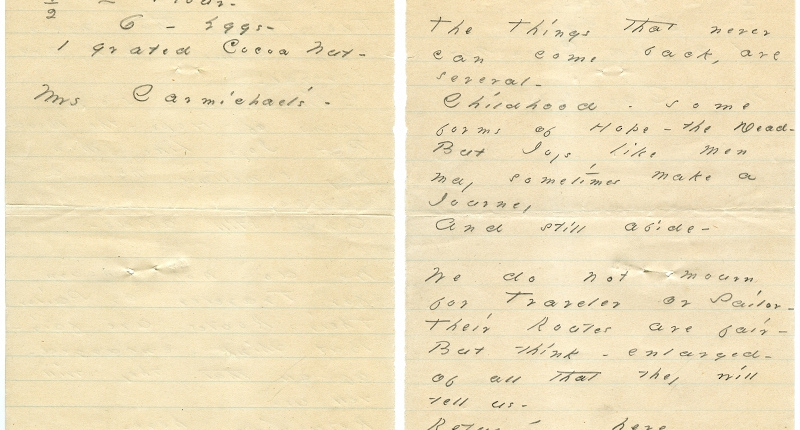 ½ Flour -
6 - Eggs -
1 grated Cocoa Nut -
Mrs Carmichael's -
The Things that never
can come back, are
several -
Childhood - some
forms of Hope - the Dead -
But Joys like Men
may sometimes make a
Journey
And still abide -
We do not mourn
for Traveler or Sailor -
Their Routes are fair -
But think - enlarged -
of all that they will
tell us -
here